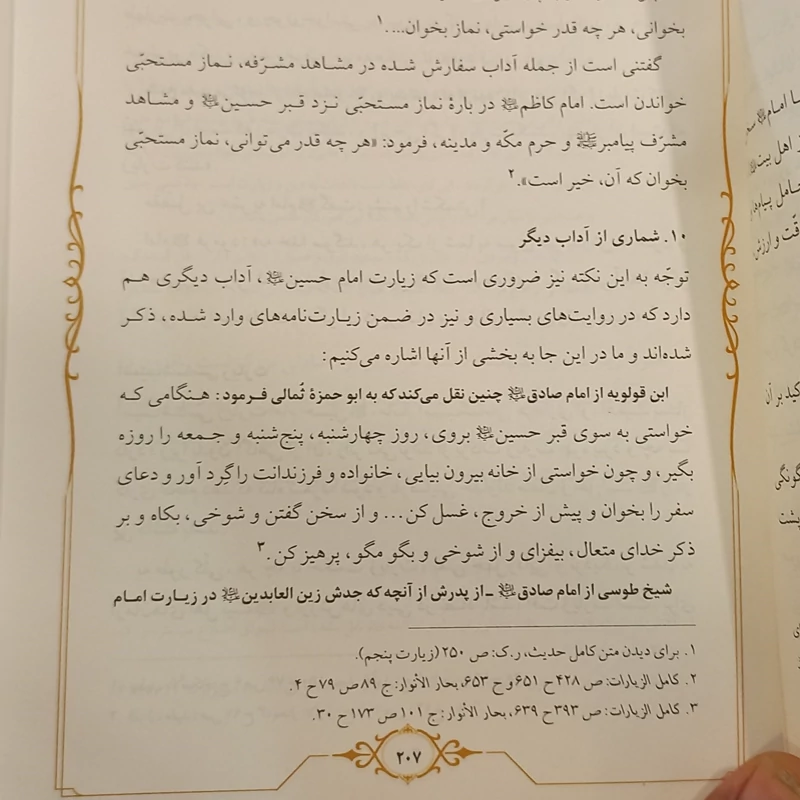 بخوانی، هر چه قدر خواستی، نماز بخوان....۱
گفتنی است از جمله آداب سفارش شده در مشاهد مشرّفه، نماز مستحبّی
خواندن است. امام کاظم در بارهٔ نماز مستحبّی نزد قبر حسین و مشاهد
مشرّف پیامبر و حرم مکّه و مدینه، فرمود: «هر چه قدر می‌توانی، نماز مستحبّی
بخوان که آن، خیر است».۲
۱۰. شماری از آداب دیگر
توجّه به این نکته نیز ضروری است که زیارت امام حسین، آداب دیگری هم
دارد که در روایت‌های بسیاری و نیز در ضمن زیارت‌نامه‌های وارد شده، ذکر
شده‌اند و ما در این جا به بخشی از آنها اشاره می‌کنیم:
ابن قولویه از امام صادق چنین نقل می‌کند که به ابو حمزهٔ ثُمالی فرمود: هنگامی که
خواستی به سوی قبر حسین بروی، روز چهارشنبه، پنج‌شنبه و جمعه را روزه
بگیر، و چون خواستی از خانه بیرون بیایی، خانواده و فرزندانت را گِرد آور و دعای
سفر را بخوان و پیش از خروج، غسل کن... و از سخن گفتن و شوخی، بکاه و بر
ذکر خدای متعال، بیفزای و از شوخی و بگو مگو، پرهیز کن.۳
شیخ طوسی از امام صادق ـ از پدرش از آنچه که جدش زین العابدین در زیارت امام
۱. برای دیدن متن کامل حدیث، ر.ک: ص ۲۵۰ (زیارت پنجم).
۲. کامل الزیارات: ص ۴۲۸ ح ۶۵۱ و ح ۶۵۳، بحار الأنوار: ج ۸۹ ص ۷۹ ح ۴.
۳. کامل الزیارات: ص ۳۹۳ ح ۶۳۹، بحار الأنوار: ج ۱۰۱ ص ۱۷۳ ح ۳۰.
۲۰۷
ا امام
اهل بیت
امل پیام
قّت و ارزش
کید بر آن
گونگی
پشت